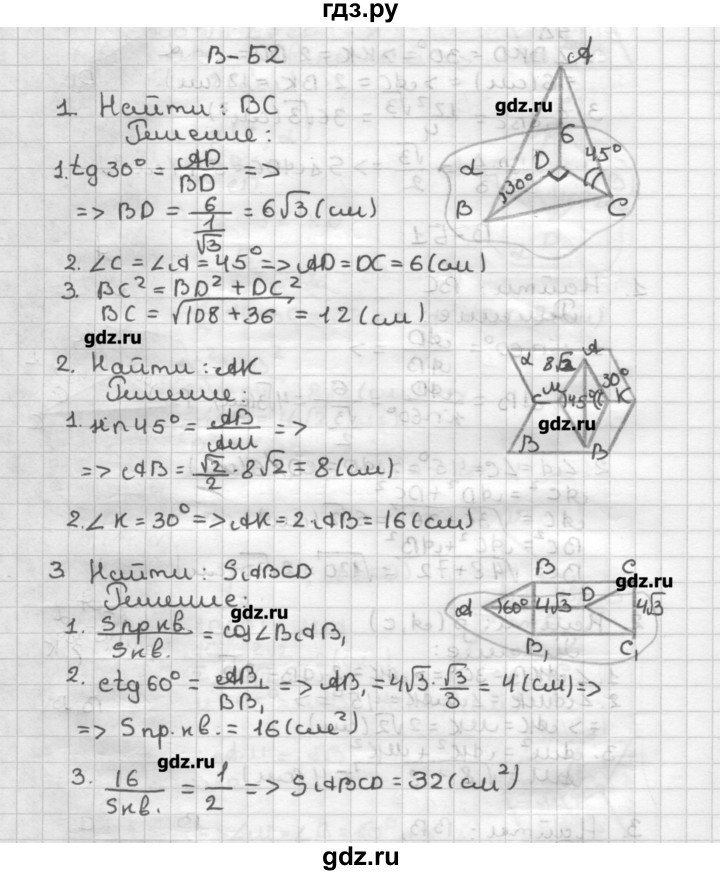 гдз.ру
В-Б2
1. Найти: BC
Решение:
1. tg 30° = AD/BD =>
=> BD = 6/(1/√3) = 6√3 (см)
2. ∠C = ∠A = 45° => AD = DC = 6 (см)
3. BC² = BD² + DC²
BC = √(108 + 36) = 12 (см)
A
gdz.ru
6
α
D
45°
30°
B
C
gdz.ru
2. Найти: AK
Решение:
1. sin 45° = AB/AM =>
=> AB = √2/2 · 8√2 = 8 (см)
2. ∠K = 30° => AK = 2·AB = 16 (см)
α
8√2
A
M
30°
45°
K
gdz.ru
B
B
3. Найти: SABCD
Решение:
gdz.ru
1. Sпр.кв/Sкв. = cos∠BAB₁
2. ctg 60° = AB₁/BB₁ => AB₁ = 4√3 · √3/3 = 4 (см) =>
=> Sпр.кв. = 16 (см²)
gdz.ru
3. 16/Sкв. = 1/2 => SABCD = 32 (см²)
B
C
gdz.ru
A
60°
4√3
D
4√3
B₁
C₁
gdz.ru